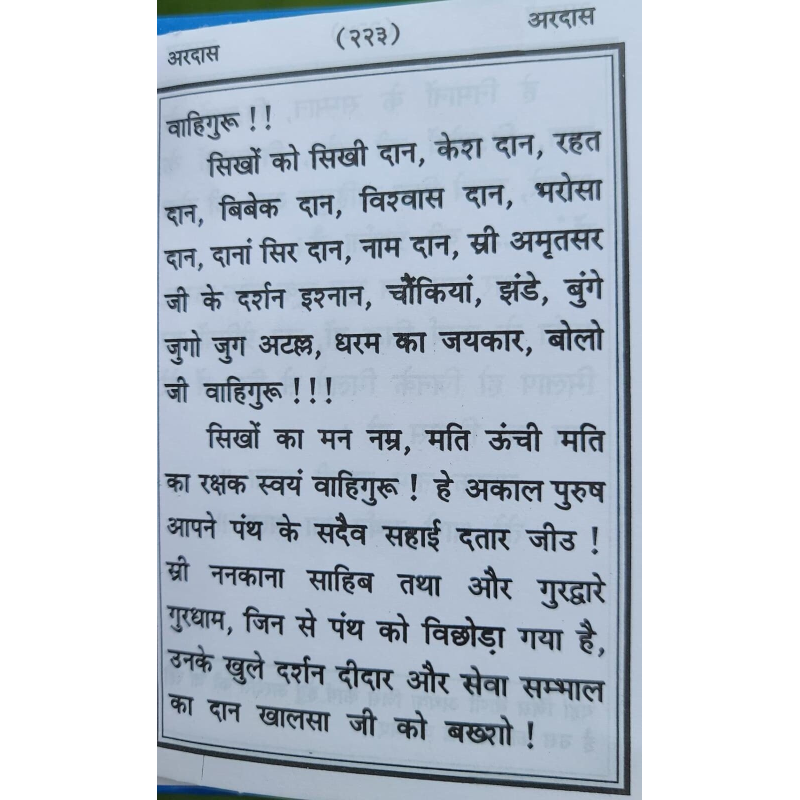 अरदास (२२३) अरदास
वाहिगुरू !!
सिखों को सिखी दान, केश दान, रहत
दान, बिबेक दान, विश्वास दान, भरोसा
दान, दानां सिर दान, नाम दान, स्री अमृतसर
जी के दर्शन इश्नान, चौंकियां, झंडे, बुंगे
जुगो जुग अटल्ल, धरम का जयकार, बोलो
जी वाहिगुरू !!!
सिखों का मन नम्र, मति ऊंची मति
का रक्षक स्वयं वाहिगुरू ! हे अकाल पुरुष
आपने पंथ के सदैव सहाई दतार जीउ !
स्री ननकाना साहिब तथा और गुरद्वारे
गुरधाम, जिन से पंथ को विछोड़ा गया है,
उनके खुले दर्शन दीदार और सेवा सम्भाल
का दान खालसा जी को बख्शो !